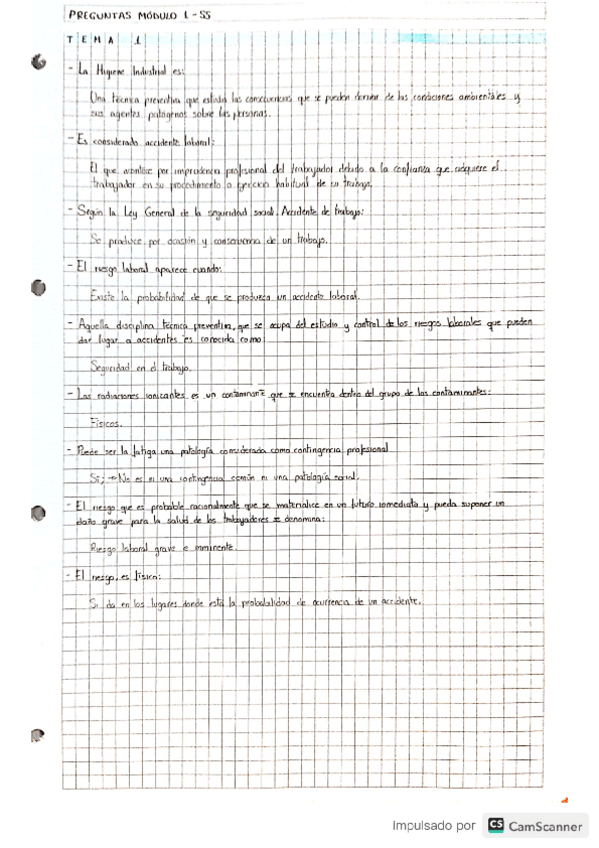 PREGUNTAS MÓDULO 1 - SS
TEMA 1
- La Higiene Industrial es:
Una técnica preventiva que estudia las consecuencias que se pueden derivar de las condiciones ambientales y
sus agentes patógenos sobre las personas.
- Es considerado accidente laboral:
El que acontece por imprudencia profesional del trabajador debido a la confianza que adquiere el
trabajador en su procedimiento o ejercicio habitual de su trabajo.
- Según la Ley General de la seguridad social. Accidente de trabajo:
Se produce por ocasión y consecuencia de un trabajo.
- El riesgo laboral aparece cuando:
Existe la probabilidad de que se produzca un accidente laboral.
- Aquella disciplina técnica preventiva, que se ocupa del estudio y control de los riesgos laborales que pueden
dar lugar a accidentes es conocida como:
Seguridad en el trabajo.
- Las radiaciones ionizantes es un contaminante que se encuentra dentro del grupo de los contaminantes:
Físicos.
- Puede ser la fatiga una patología considerada como contingencia profesional
Sí; → No es ni una contingencia común ni una patología social.
- El riesgo que es probable racionalmente que se materialice en un futuro inmediato y pueda suponer un
daño grave para la salud de los trabajadores se denomina:
Riesgo laboral grave e inminente.
- El riesgo, es físico:
Si da en los lugares donde está la probabilidad de ocurrencia de un accidente.
Impulsado por CS CamScanner